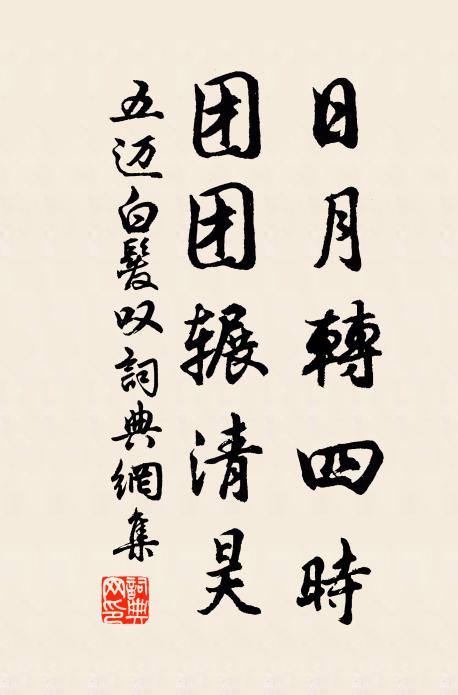 日月轉四時
团团辗清昊
五迈白髮叹詞典網集
詞典網印